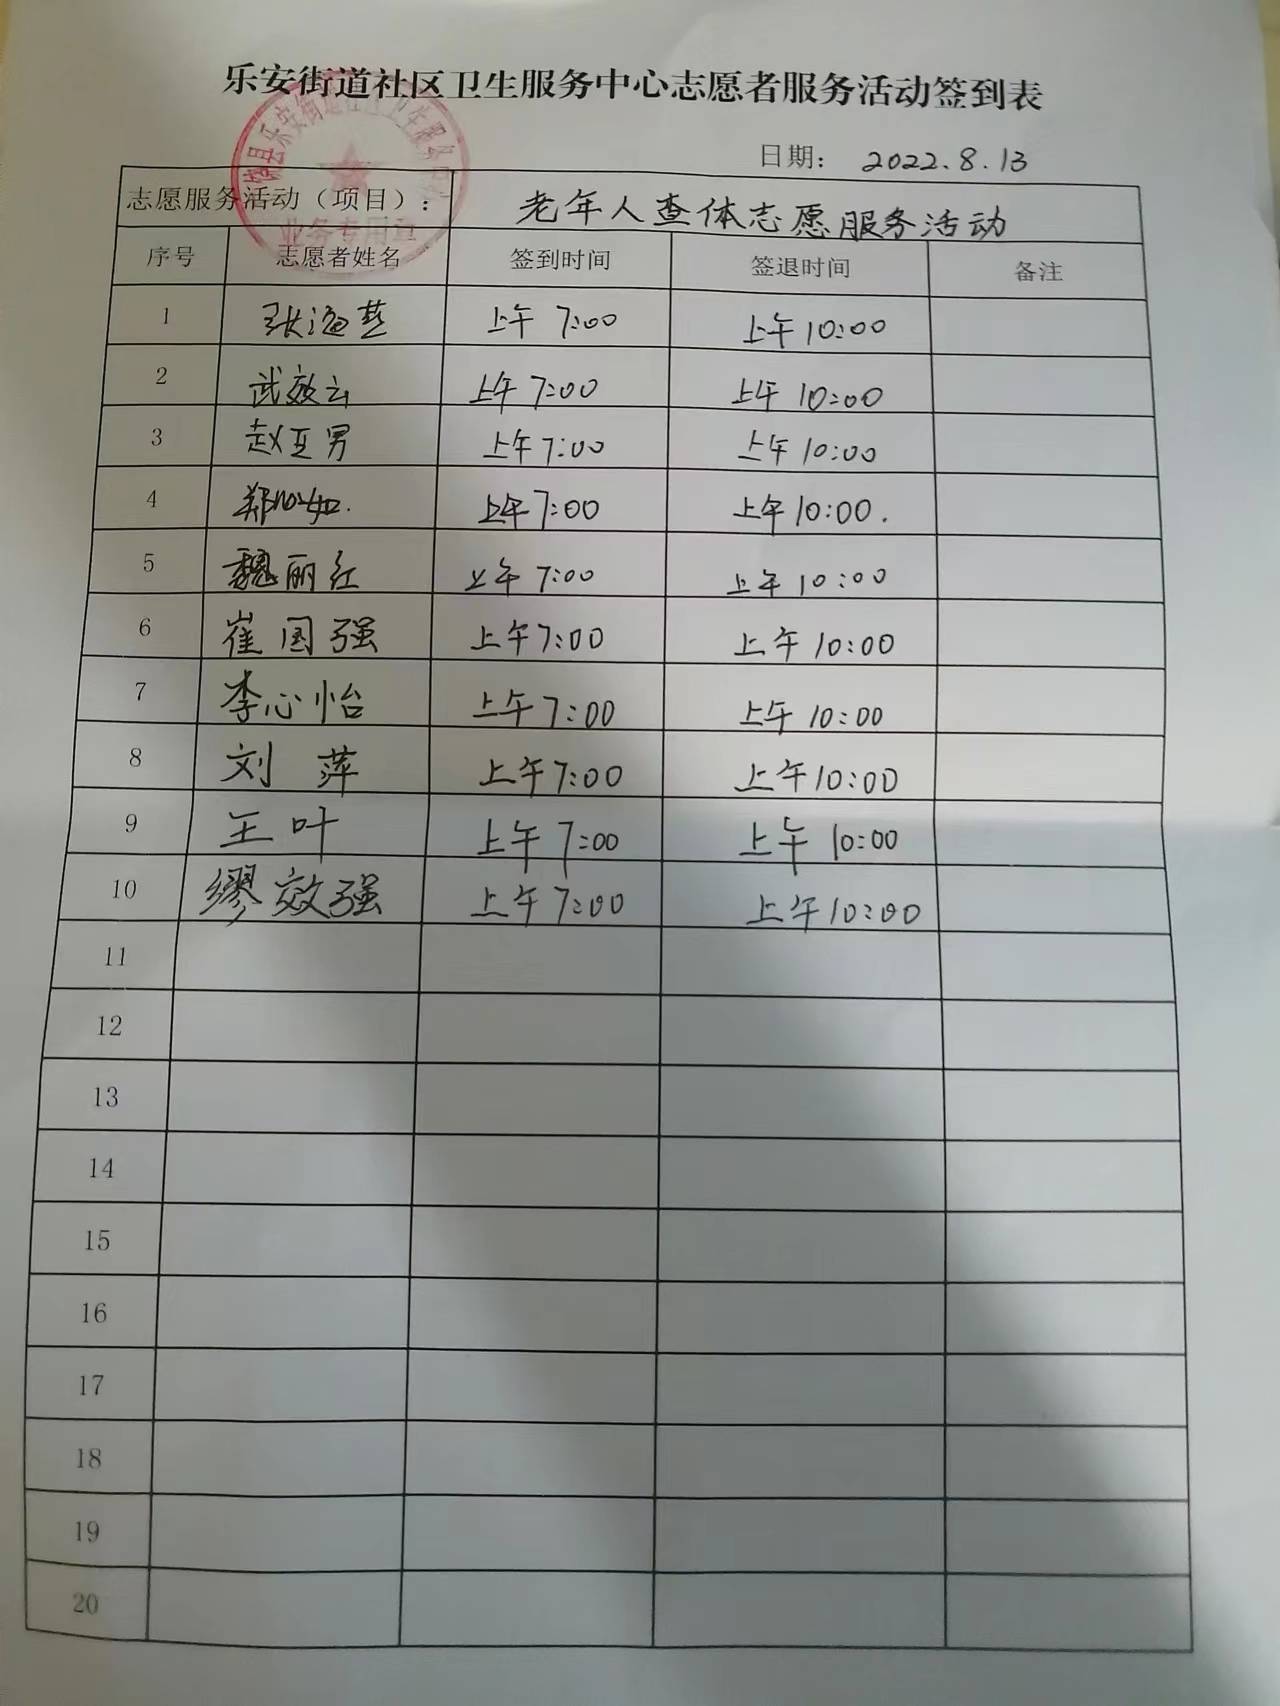 乐安街道社区卫生服务中心志愿者服务活动签到表
日期： 2022.8.13
志愿服务活动（项目）： 老年人查体志愿服务活动
业务专用章
序号 志愿者姓名 签到时间 签退时间 备注
1 张海燕 上午 7:00 上午 10:00
2 武效云 上午 7:00 上午 10:00
3 赵亚男 上午 7:00 上午 10:00
4 郑 如. 上午 7:00 上午 10:00.
5 魏丽红 上午 7:00 上午 10:00
6 崔国强 上午 7:00 上午 10:00
7 李心怡 上午 7:00 上午 10:00
8 刘 萍 上午 7:00 上午 10:00
9 王叶 上午 7:00 上午 10:00
10 缪效强 上午 7:00 上午 10:00
11
12
13
14
15
16
17
18
19
20